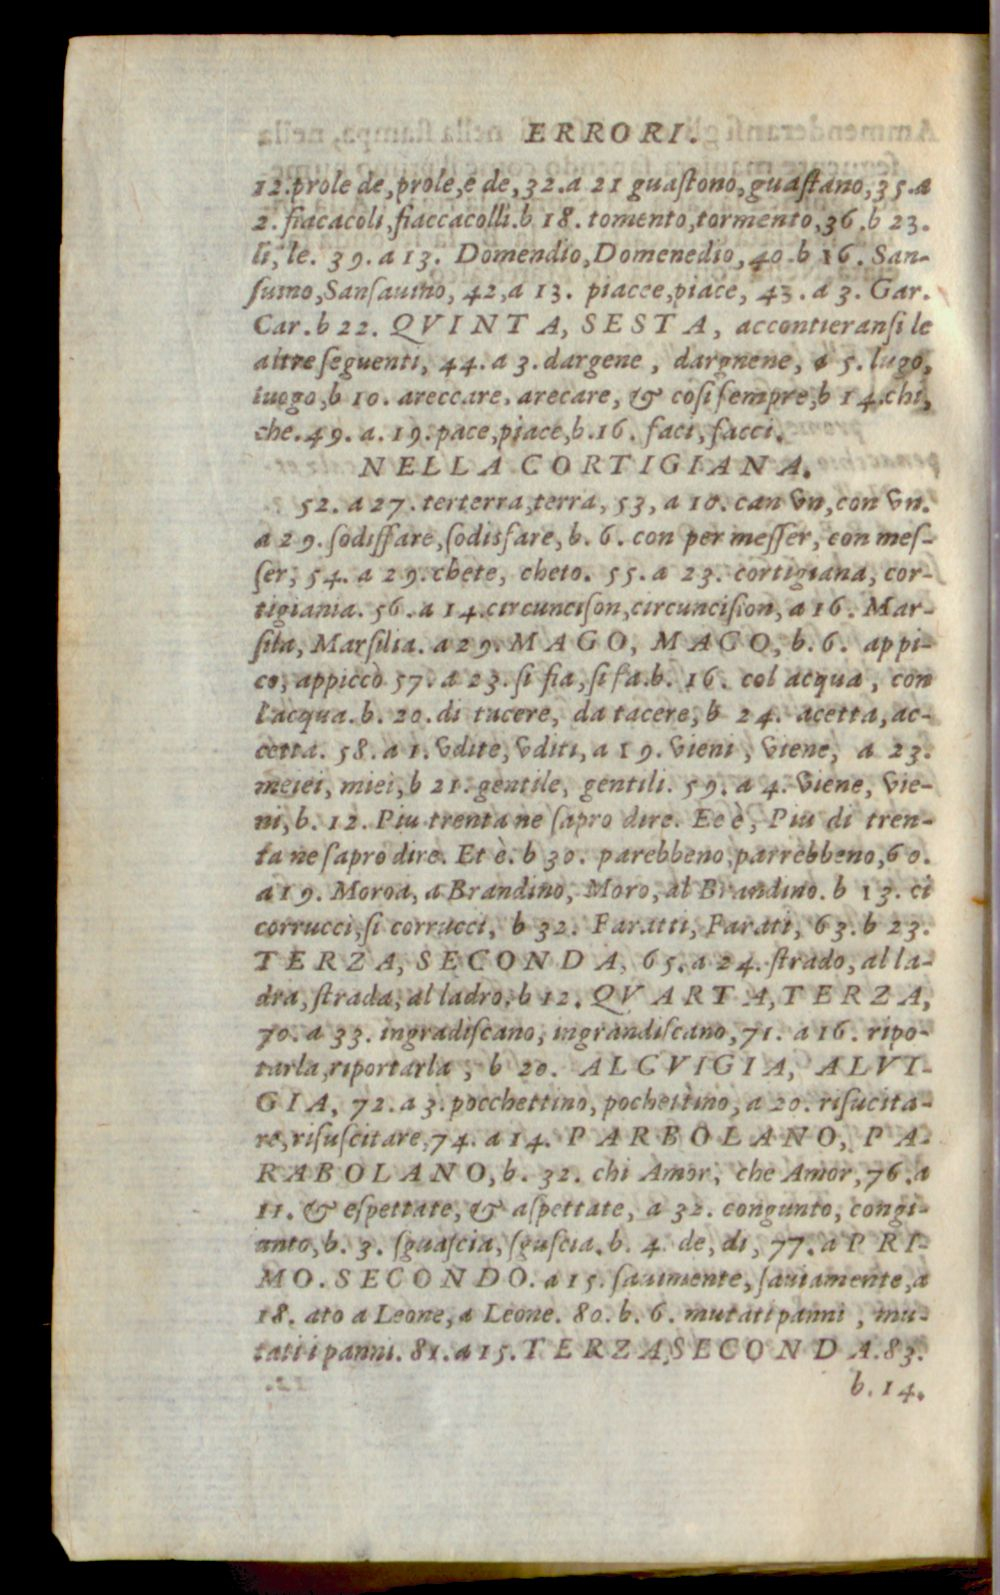 ERRORI.
12.prole de,prole,e de,32.a 21 guaſtono,guaſtano,35.a
2. fiacacoli,fiaccacolli.b 18. tomento,tormento,36.b 23.
li, le. 39. a 13. Domendio,Domenedio, 40.b 16. San-
ſuino,Sanſauino, 42,a 13. piacce,piace, 43. a 3. Gar.
Car.b 22. QVINTA, SESTA, accontieranſi le
altre ſeguenti, 44. a 3. dargene , dargnene, a 5. lugo,
luogo,b 10. areccare, arecare, & coſi ſempre,b 14.chi,
che.49. a. 19.pace,piace,b.16. faci, facci.
NELLA CORTIGIANA.
52. a 27. terterra,terra, 53, a 10. can vn,con vn.
a 29. ſodiſfare,ſodisfare, b. 6. con per meſſer, con meſ-
ſer, 54. a 29. chete, cheto. 55. a 23. cortigiana, cor-
tigiania. 56. a 14.circunciſon,circunciſion, a 16. Mar-
ſita, Marſilia. a 29. MAGO, MACO, b. 6. appi-
co, appiccò 57. a 23. ſi fia, ſi fa.b. 16. col acqua , con
l'acqua. b. 20. di tacere, da tacere, b 24. acetta, ac-
cetta. 58. a 1. vdite, vditi, a 19. vieni , viene, a 23.
meiei, miei, b 21. gentile, gentili. 59. a 4. viene, vie-
ni, b. 12. Piu trenta ne ſapro dire. Ee è, Piu di tren-
ta ne ſapro dire. Et è. b 30. parebbeno,parrebbeno,60.
a 19. Moroa, a Brandino, Moro, al Brandino. b 13. ci
corrucci,ſi corrucci, b 32. Faratti, Parati, 63. b 23.
TERZA, SECONDA, 65. a 24. ſtrado, al la-
dra, ſtrada, al ladro. b 12. QVARTA, TERZA,
70. a 33. ingradiſcano, ingrandiſcano, 71. a 16. ripo-
tarla,riportarla , b 20. ALCVIGIA, ALVI-
GIA, 72. a 3. pocchettino, pochettino, a 20. riſucita-
re,riſuſcitare,74. a 14. PARBOLANO, PA-
RABOLANO, b. 32. chi Amor, che Amor, 76. a
11. & eſpettate, & aſpettate, a 32. congunto, congi-
unto, b. 3. ſguaſcia, ſguſcia. b. 4. de, di, 77. a PRI-
MO. SECONDO. a 15. ſauimente, ſauiamente, a
18. ato a Leone, a Leone. 80. b. 6. mutati panni , mu-
tati i panni. 81. a 15. TERZA,SECONDA. 83.
b. 14.